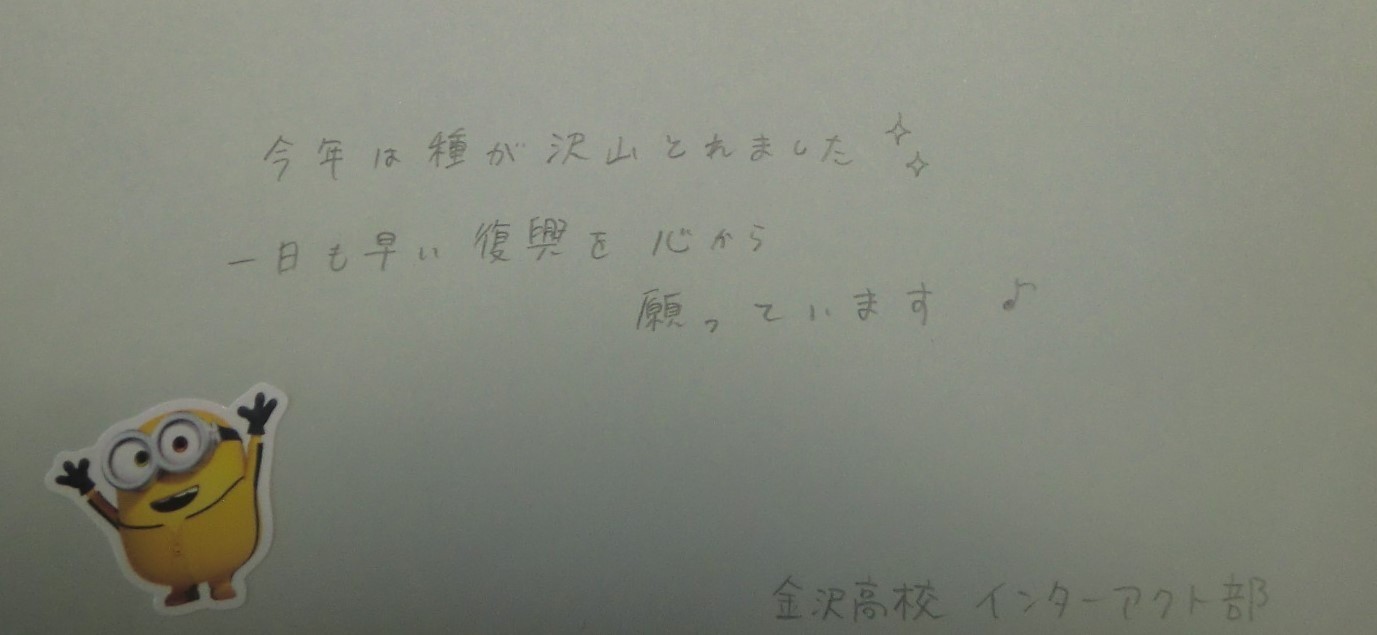 今年は種が沢山とれました
一日も早い復興を心から
願っています♪
金沢高校 インターアクト部